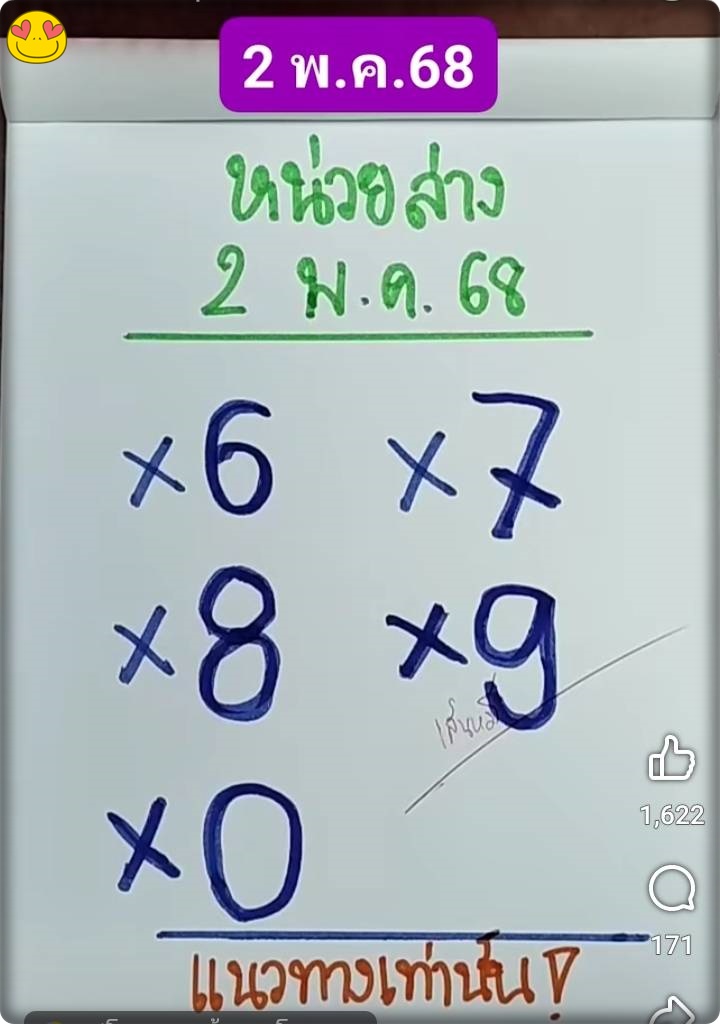 2 พ.ค.68
หน่วยล่าง
2 พ.ค. 68
×6 ×7
×8 ×9
×0
แนวทางเท่านั้น!
1,622
171